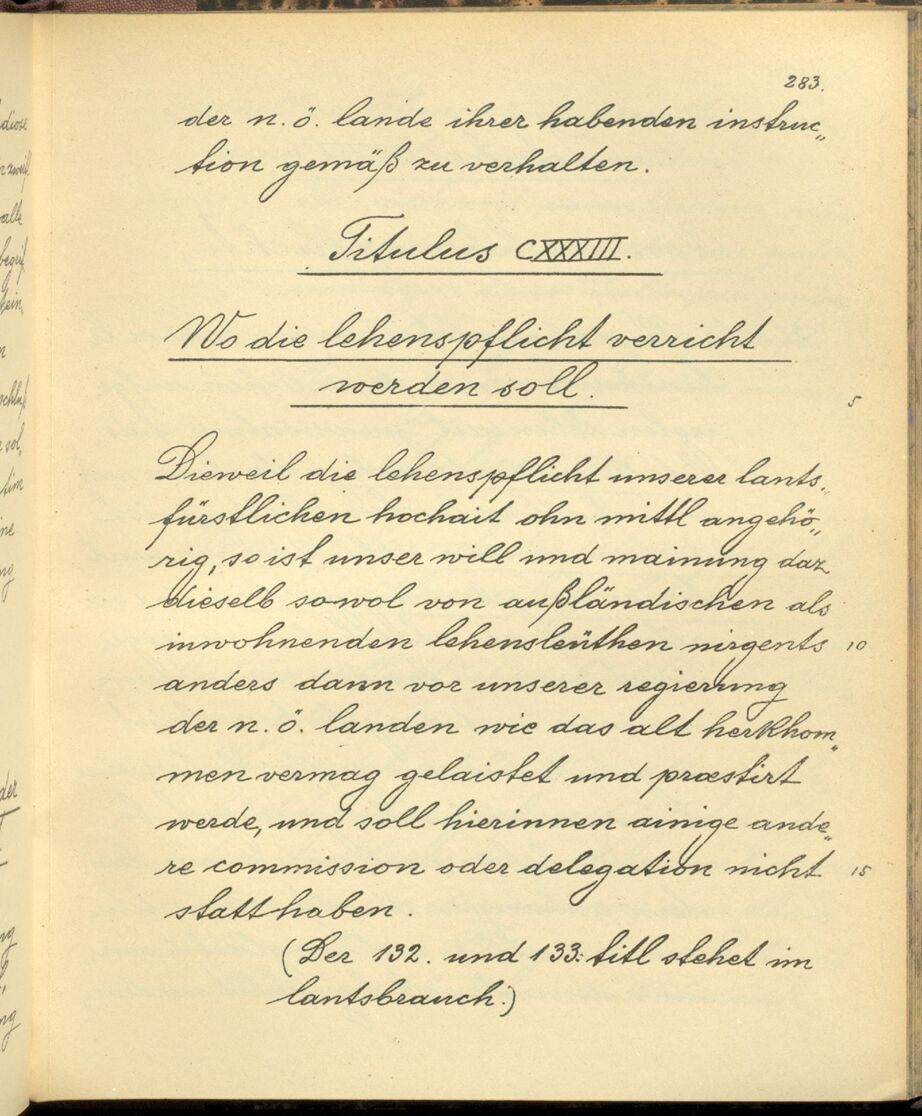 283.
der n. ö. lande ihrer habenden instruc„
tion gemäß zu verhalten.
Titulus CXXXIII.
Wo die lehenspflicht verricht
werden soll.
5
Dieweil die lehenspflicht unserer lants„
fürstlichen hochait ohn mittl angehö„
rig, so ist unser will und mainung daz
dieselb sowol von außländischen als
inwohnenden lehensleüthen nirgents 10
anders dann vor unserer regierung
der n. ö. landen wie das alt herkhom„
men vermag gelaistet und præstirt
werde, und soll hierinnen ainige ande„
re commission oder delegation nicht 15
statt haben.
(Der 132. und 133. titl stehet im
lantsbrauch.)